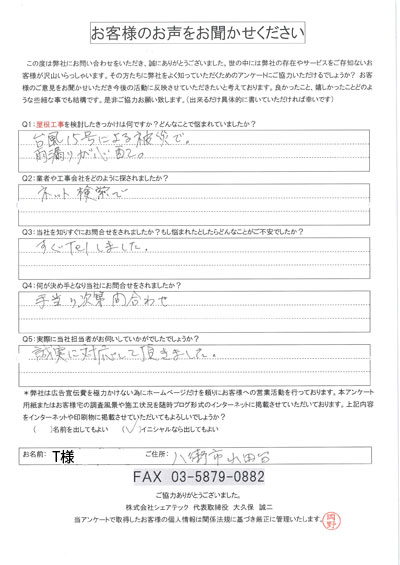 お客様のお声をお聞かせください
この度は弊社にお問い合わせをいただき、誠にありがとうございました。世の中には弊社の存在やサービスをご存知ないお
客様が沢山いらっしゃいます。その方たちに弊社をよく知っていただくためのアンケートにご協力いただけるでしょうか？ お客
様のご意見をお聞かせいただき今後の活動に反映させていただきたいと考えております。良かったこと、嬉しかったことどのよ
うな些細な事でも結構です。是非ご協力お願い致します。（出来るだけ具体的に書いていただければ幸いです）
Q1：屋根工事を検討したきっかけは何ですか？どんなことで悩まれていましたか？
台風15号による被災で。
雨漏りが心配で。
Q2：業者や工事会社をどのように探されましたか？
ネット検索で
Q3：当社を知りすぐにお問合せをされましたか？もし悩まれたとしたらどんなことがご不安でしたか？
すぐtelしました。
Q4：何が決め手となり当社にお問合せをされましたか？
手当り次第問合わせ
Q5：実際に当社担当者がお伺いしていかがでしたでしょうか？
誠実に対応して頂きました。
＊弊社は広告宣伝費を極力かけない為にホームページだけを頼りにお客様への営業活動を行っております。本アンケート
用紙またはお客様宅の調査風景や施工状況を随時ブログ形式のインターネットに掲載させていただいております。上記内容
をインターネットや印刷物に掲載させていただいてもよろしいでしょうか？
（ ）名前を出してもよい （✓）イニシャルなら出してもよい
お名前： T様 ご住所： 八街市山田台
FAX 03-5879-0882
ご協力ありがとうございました。
株式会社シェアテック 代表取締役 大久保 誠二
当アンケートで取得したお客様の個人情報は関係法規に基づき厳正に管理いたします。
岡野